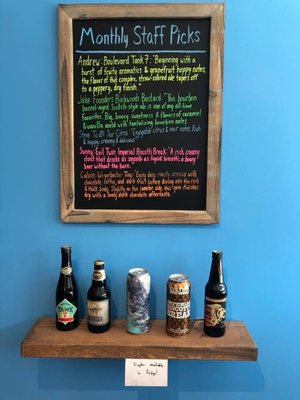 Monthly Staff Picks
Andrew: Boulevard Tank 7: "Beginning with a
burst of fruity aromatics & grapefruit hoppy notes,
the flavor of this complex, straw-colored ale tapers off
to a peppery, dry finish."
Jake: Founders Backwoods Bastard: "This bourbon
barrel-aged Scotch-style ale is one of my all-time
favorites. Big, boozy sweetness & flavors of caramel
& vanilla meld with tantalizing bourbon notes.
Citra: "Enjoyable citrus & sour notes. Rich
& creamy & delicious"
Sunny: Evil Twin Imperial Biscotti Break: "A rich, creamy
stout that drinks as smooth as liquid biscotti, a boozy
beer without the burn."
Calvin: Weyerbacher Tiny: Enjoy deep, roasty
chocolate, toffee, and dark fruit before diving into the rich
& thick body. Slightly on the sweeter side, this gem finishes
dry with a lovely dark chocolate aftertaste.
TANK
IMPERIAL
BISCOTTI
BREAK
Singles available
in fridge!